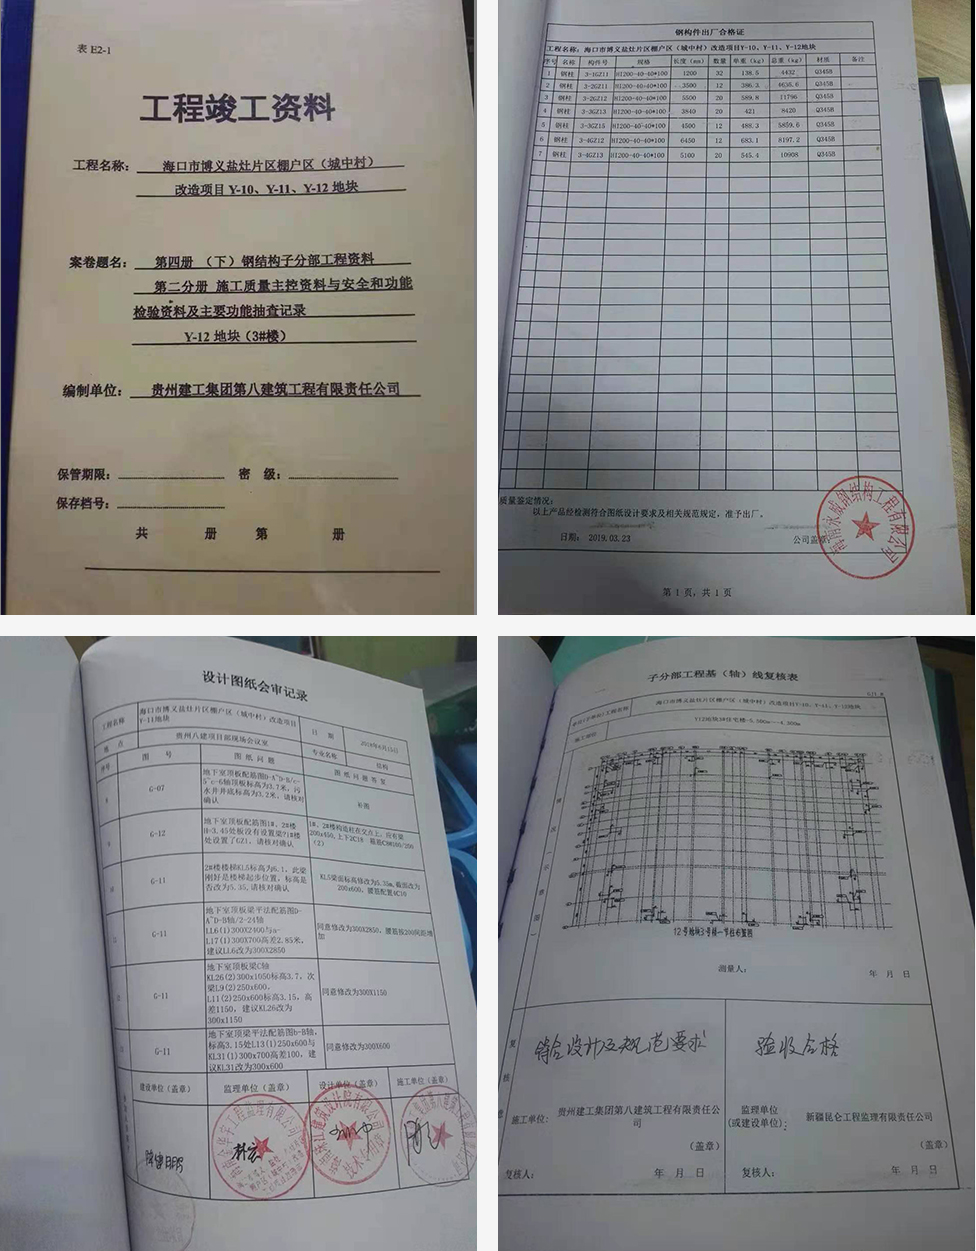 表 E2-1
工程竣工资料
工程名称： 海口市博义盐灶片区棚户区（城中村）
改造项目 Y-10、Y-11、Y-12 地块
案卷题名： 第四册 （下）钢结构子分部工程资料
第二分册 施工质量主控资料与安全和功能
检验资料及主要功能抽查记录
Y-12 地块（3#楼）
编制单位： 贵州建工集团第八建筑工程有限责任公司
保管期限： 密 级：
保存档号：
共 册 第 册
钢构件出厂合格证
工程名称：海口市博义盐灶片区棚户区（城中村）改造项目Y-10、Y-11、Y-12地块
序号 名称 构件号 规格 长度（mm） 数量 单重（kg） 总重（kg） 材质 备注
1 钢柱 3-1GZ11 HI200-40-40*100 1200 32 138.5 4432 Q345B
2 钢柱 3-2GZ11 HI200-40-40*100 3500 12 386.3 4635.6 Q345B
3 钢柱 3-2GZ12 HI200-40-40*100 5500 20 589.8 11796 Q345B
4 钢柱 3-3GZ13 HI200-40-40*100 3840 20 421 8420 Q345B
5 钢柱 3-3GZ15 HI200-40-40*100 4500 12 488.3 5859.6 Q345B
6 钢柱 3-4GZ12 HI200-40-40*100 6450 12 683.1 8197.2 Q345B
7 钢柱 3-4GZ13 HI200-40-40*100 5100 20 545.4 10908 Q345B
质量鉴定情况：
以上产品经检测符合图纸设计要求及相关规范规定，准予出厂。
日期： 2019.03.23 公司盖章：
第 1 页，共 1 页
设计图纸会审记录
工程名称 海口市博义盐灶片区棚户区（城中村）改造项目 日 期
Y-11地块
地 点 贵州八建项目部现场会议室 专业名称 结构
序号 图 号 图 纸 问 题 图 纸 问 题 答 复
G-07
5~c-6轴顶板标高为3.7米，污
水井井底标高为3.2米，请核对
确认
补图
G-12
地下室顶板配筋图1#、2#楼
H-3.45处板没有设置梁？1#楼
处设置了GZ1，请核对确认
1#、2#楼构造柱在交点上，应有梁
200x450，上下2C18 箍筋C8@100/200
（2）
G-11
2#楼楼梯KL5标高为6.1，此梁
刚好是楼梯起步位置，标高是
否改为5.35,请核对确认
KL5梁面标高修改为5.35m,截面改为
200x600，腰筋配置4C10
G-11
地下室顶板梁平法配筋图D-
A~D-B轴/2-24轴
LL6(1)300X2400与a-
L17(1)300X700高差2.85米，
建议LL6改为300X2850
同意修改为300X2850，腰筋按200间距增
加
G-11
地下室顶板梁C轴
KL26(2)300x1050标高3.7，次
梁L9(2)250x600，
L11(2)250x600标高3.15，高
差1150，建议KL26改为
300x1150
同意修改为300X1150
G-11
地下室顶梁平法配筋图b-B轴，
标高3.15处L13(1)250x600与
KL31(1)300x700高差100，建
议KL31改为300x600
同意修改为300X600
建设单位（盖章） 监理单位（盖章） 设计单位（盖章） 施工单位（盖章）
子分部工程基（轴）线复核表
单位(子单位)工程名称 海口市博义盐灶片区棚户区（城中村）改造项目Y-10、Y-11、Y-12地块
施工部位 Y12地块3#住宅楼-5.500m---4.300m
12号地块3号楼一节柱布置图
测量人： 年 月 日
符合设计及规范要求
验收合格
施工单位： 贵州建工集团第八建筑工程有限责任公
司
（盖章）
复核人： 年 月 日
监理单位
(或建设单位)： 新疆昆仑工程监理有限责任公司
（盖章）
复核人： 年 月 日